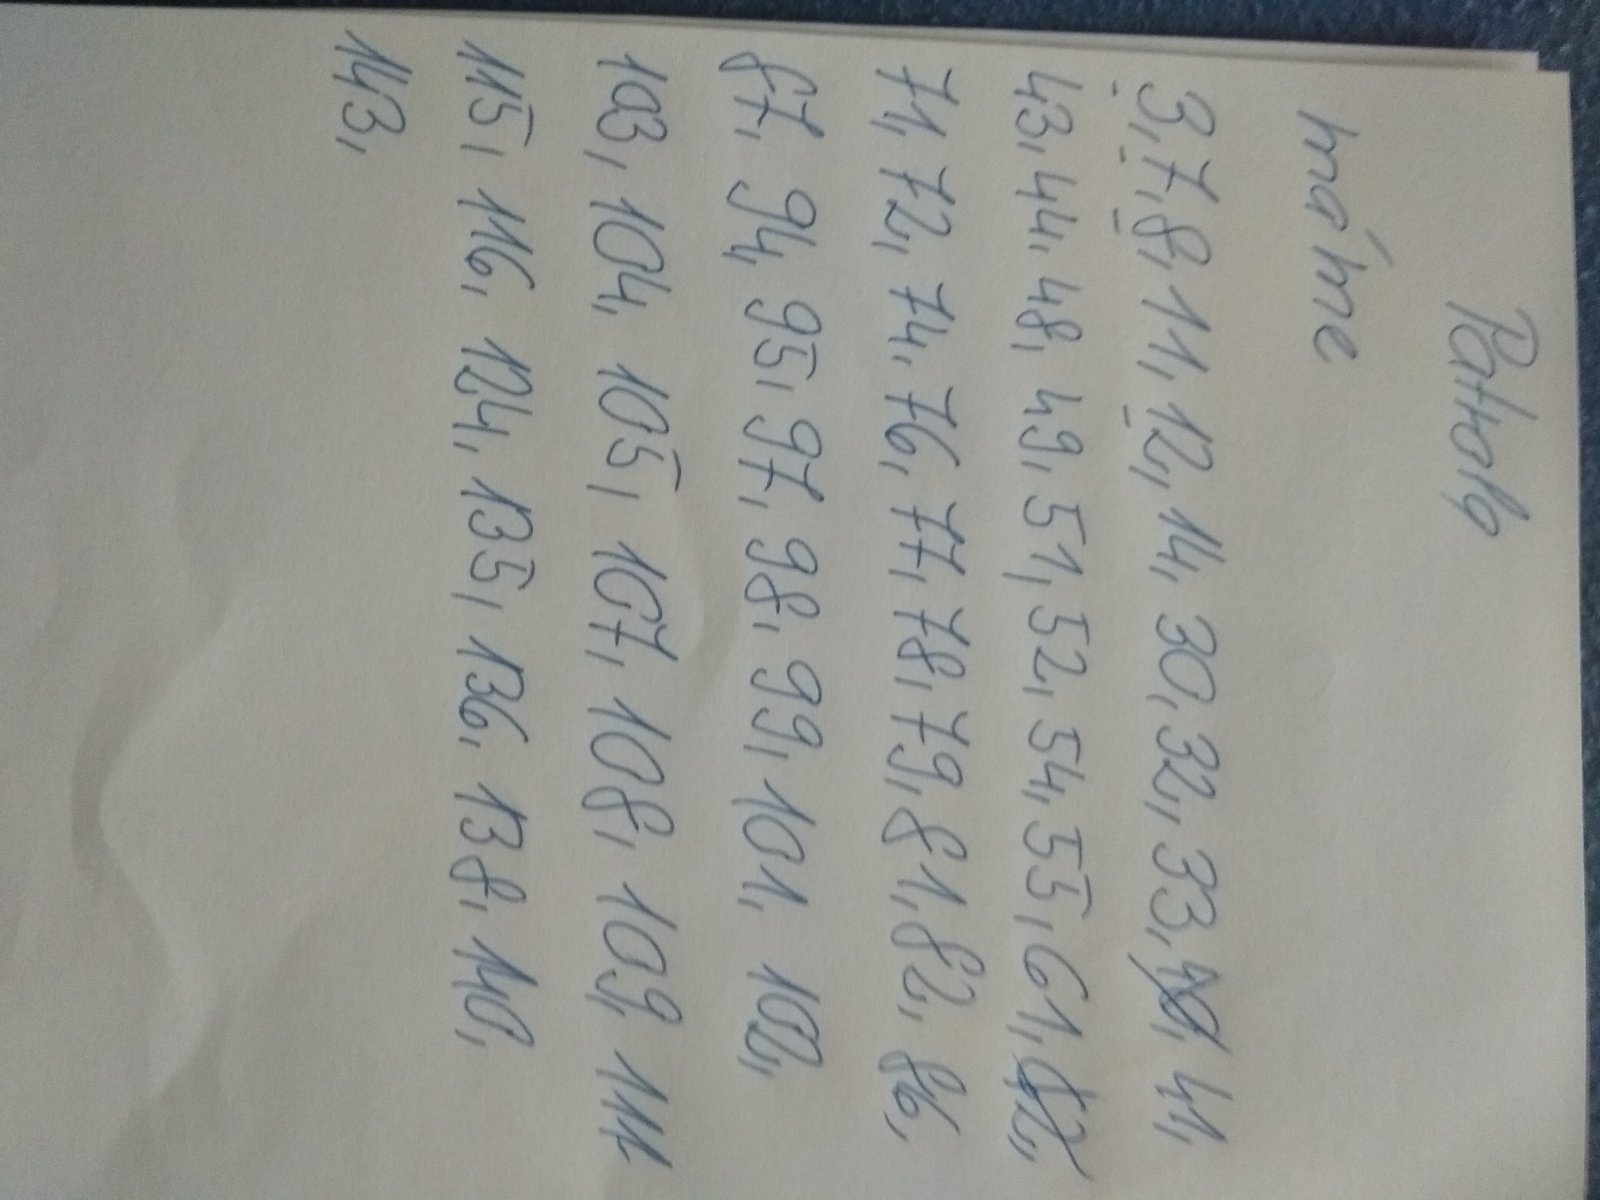 Patrolo
máme
3, 7, 8, 11, 12, 14, 30, 32, 33, 41,
43, 44, 48, 49, 51, 52, 54, 55, 61,
71, 72, 74, 76, 77, 78, 79, 81, 82, 86,
87, 94, 95, 97, 98, 99, 101, 102,
103, 104, 105, 107, 108, 109, 111
115, 116, 124, 135, 136, 138, 140,
143,